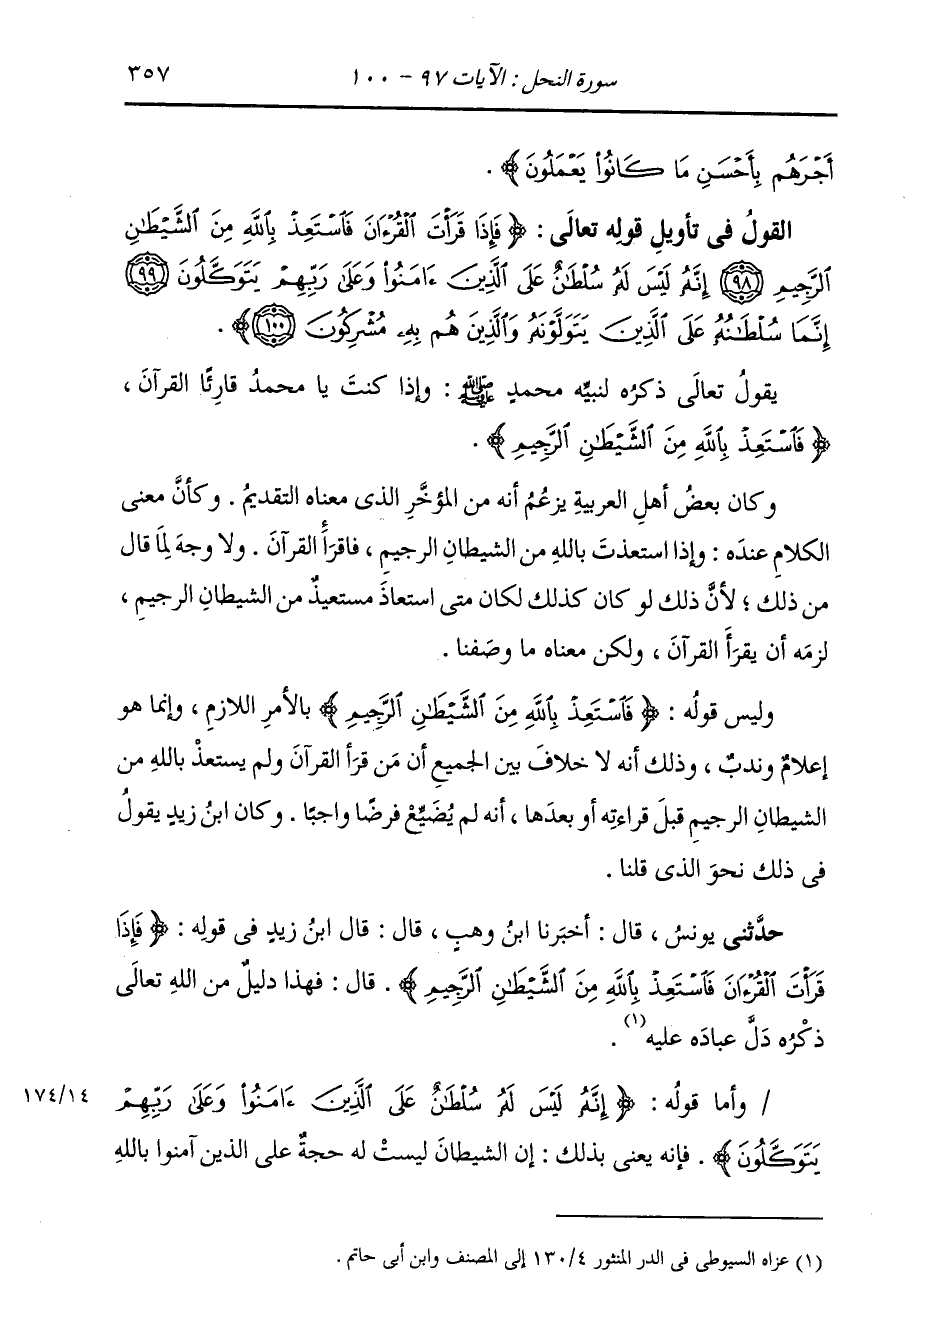 سورة النحل : الآيات ٩٧ - ١٠٠ ٣٥٧
أَجْرَهُم بِأَحْسَنِ مَا كَانُوا۟ يَعْمَلُونَ ﴾ .
القولُ فى تأويلِ قولِه تعالَى : ﴿ فَإِذَا قَرَأْتَ ٱلْقُرْءَانَ فَٱسْتَعِذْ بِٱللَّهِ مِنَ ٱلشَّيْطَٰنِ
ٱلرَّجِيمِ ٩٨ إِنَّهُۥ لَيْسَ لَهُۥ سُلْطَٰنٌ عَلَى ٱلَّذِينَ ءَامَنُوا۟ وَعَلَىٰ رَبِّهِمْ يَتَوَكَّلُونَ ٩٩
إِنَّمَا سُلْطَٰنُهُۥ عَلَى ٱلَّذِينَ يَتَوَلَّوْنَهُۥ وَٱلَّذِينَ هُم بِهِۦ مُشْرِكُونَ ١٠٠ ﴾ .
يقولُ تعالَى ذكرُه لنبيِّه محمدٍ ﷺ : وإذا كنتَ يا محمدُ قارئًا القرآنَ ،
﴿ فَٱسْتَعِذْ بِٱللَّهِ مِنَ ٱلشَّيْطَٰنِ ٱلرَّجِيمِ ﴾ .
وكان بعضُ أهلِ العربيةِ يزعُمُ أنه من المؤخَّرِ الذى معناه التقديمُ . وكأنَّ معنى
الكلامِ عندَه : وإذا استعذتَ باللهِ من الشيطانِ الرجيمِ ، فاقرَأْ القرآنَ . ولا وجهَ لِمَا قال
من ذلك ؛ لأنَّ ذلك لو كان كذلك لكان متى استعاذَ مستعيذٌ من الشيطانِ الرجيمِ ،
لزمَه أن يقرَأَ القرآنَ ، ولكن معناه ما وصَفنا .
وليس قولُه : ﴿ فَٱسْتَعِذْ بِٱللَّهِ مِنَ ٱلشَّيْطَٰنِ ٱلرَّجِيمِ ﴾ بالأمرِ اللازمِ ، وإنما هو
إعلامٌ وندبٌ ، وذلك أنه لا خلافَ بين الجميعِ أن مَن قرَأ القرآنَ ولم يستعذْ باللهِ من
الشيطانِ الرجيمِ قبلَ قراءتِه أو بعدَها ، أنه لم يُضَيِّعْ فرضًا واجبًا . وكان ابنُ زيدٍ يقولُ
فى ذلك نحوَ الذى قلنا .
حدَّثنى يونسُ ، قال : أخبَرنا ابنُ وهبٍ ، قال : قال ابنُ زيدٍ فى قولِه : ﴿ فَإِذَا
قَرَأْتَ ٱلْقُرْءَانَ فَٱسْتَعِذْ بِٱللَّهِ مِنَ ٱلشَّيْطَٰنِ ٱلرَّجِيمِ ﴾ . قال : فهذا دليلٌ من اللهِ تعالَى
ذكْرُه دَلَّ عبادَه عليه(١) .
/ وأما قولُه : ﴿ إِنَّهُۥ لَيْسَ لَهُۥ سُلْطَٰنٌ عَلَى ٱلَّذِينَ ءَامَنُوا۟ وَعَلَىٰ رَبِّهِمْ ١٧٤/١٤
يَتَوَكَّلُونَ ﴾ . فإنه يعنى بذلك : إن الشيطانَ ليستْ له حجةٌ على الذين آمنوا باللهِ
(١) عزاه السيوطى فى الدر المنثور ١٣٠/٤ إلى المصنف وابن أبى حاتم .